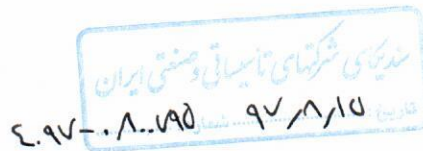 سندیکای شرکتهای تأسیساتی و صنعتی ایران
تاریخ: ۹۷٫۸٫۱۵ شماره: ۴۰۹۷-۰۸۰۰۷۹۵